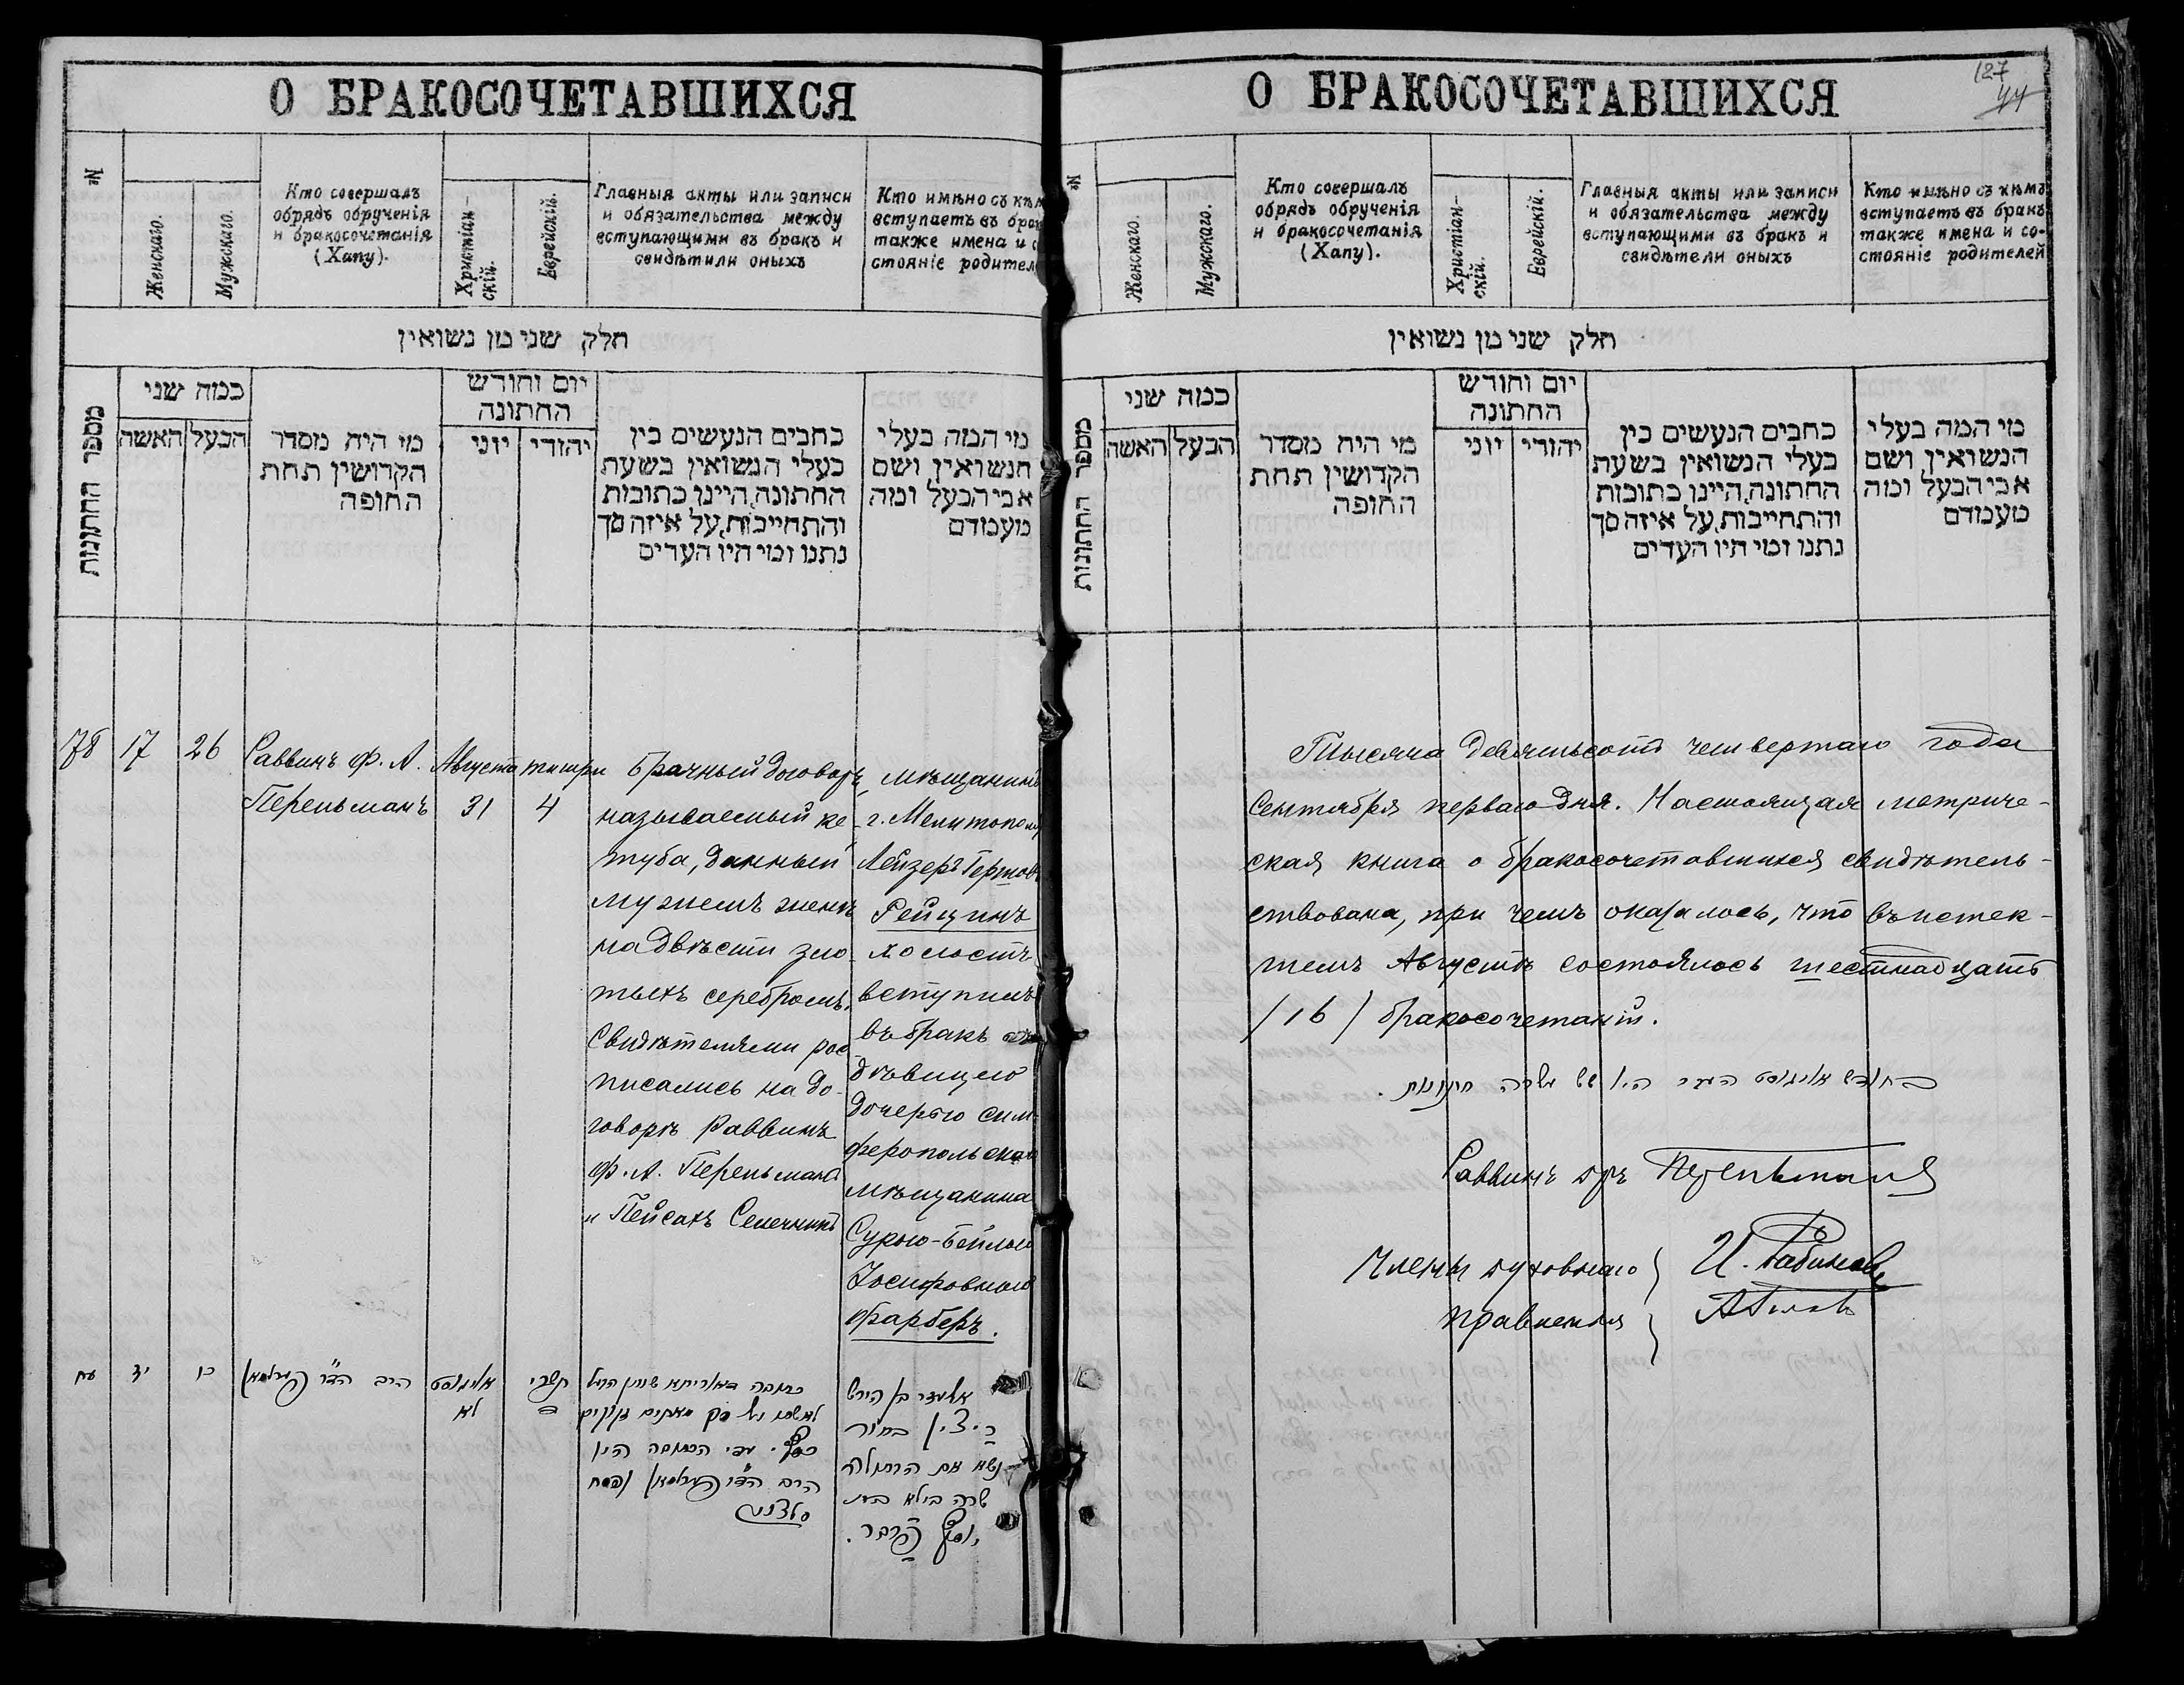 О БРАКОСОЧЕТАВШИХСЯ
№
Женскаго.
Мужскаго.
Кто совершалъ
обрядъ обрученія
и бракосочетанія
(Хапу).
Христіан-
скій.
Еврейскій.
Главныя акты или записи
и обязательства между
вступающими въ бракъ и
свидѣтили оныхъ
Кто имѣно съ
вступаетъ въ
также имена и
стояніе
חלק שני מן נשואין
מספר החתונות
כמה שני
האשה
הבעל
מי היה מסדר
הקדושין תחת
החופה
יום וחודש
החתונה
יוני
יהודי
כתבים הנעשים בין
בעלי הנשואין בשעת
החתונה, היינו כתובות
והתחייבות, על איזה סך
נתנו ומי היו העדים
מי המה בעלי
הנשואין ושם
אבי הבעל ומה
מעמדם
78
17
26
Раввинъ Ф. А.
Перельманъ
Августа
31
тишри
4
Брачный договоръ,
называемый ке-
туба, данный
мужемъ женѣ
на двѣсти зло-
тыхъ серебромъ.
Свидѣтелями рос-
писались на до-
говорѣ Раввинъ
Ф. А. Перельманъ
и Пейсахъ
мѣщанинъ
г. Мелитополя
Лейзеръ
Рейцинъ
холостъ
вступилъ
въ бракъ съ
дѣвицею
дочерью сим-
феропольскаго
мѣщанина
Сурою-Бейлою
Іосифовною
Фарберъ.
עח
יז
כו
הרב הד״ר פערלמאן
אויגוסט
לא
תשרי
כתובה דאוריתא שנתן הבעל
לאשתו על סך מאתים זקוקים
כסף. עדי הכתובה היו
הרב הד״ר פערלמאן ופסח
אליעזר בן הירש
רייצין בחור
נשא את הבתולה
שרה ביילא בת
יוסף פרבר.
О БРАКОСОЧЕТАВШИХСЯ
127
44
№
Женскаго.
Мужскаго.
Кто совершалъ
обрядъ обрученія
и бракосочетанія
(Хапу).
Христіан-
скій.
Еврейскій.
Главныя акты или записи
и обязательства между
вступающими въ бракъ и
свидѣтели оныхъ
Кто имѣно съ кѣмъ
вступаетъ въ бракъ
также имена и со-
стояніе родителей
חלק שני מן נשואין
מספר החתונות
כמה שני
האשה
הבעל
מי היה מסדר
הקדושין תחת
החופה
יום וחודש
החתונה
יוני
יהודי
כתבים הנעשים בין
בעלי הנשואין בשעת
החתונה, היינו כתובות
והתחייבות, על איזה סך
נתנו ומי היו העדים
מי המה בעלי
הנשואין ושם
אבי הבעל ומה
מעמדם
Тысяча девятьсотъ четвертаго года
Сентября перваго дня. Настоящая метриче-
ская книга о бракосочетавшихся свидѣтель-
ствована, при чемъ оказалось, что въ истек-
шемъ Августѣ состоялось шестнадцать
/16/ бракосочетаній.
בחודש אויגוסט העבר היו שש עשרה חתונות.
Раввинъ дръ Перельманъ
Члены духовнаго
правленія